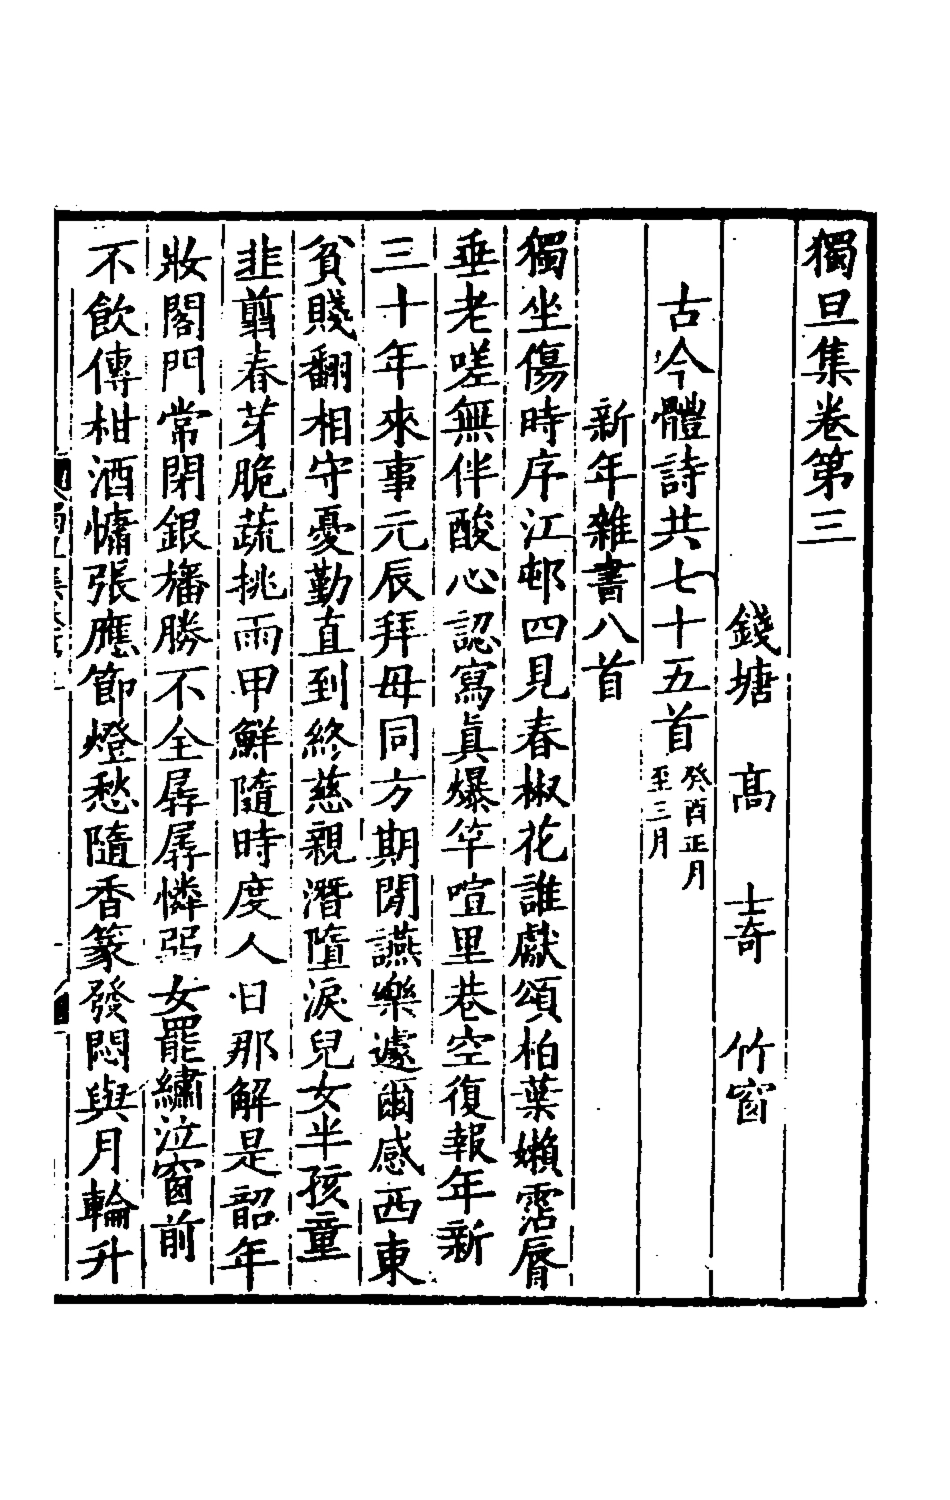 獨旦集卷第三
錢塘　高　士奇　竹窗
古今體詩共七十五首癸酉正月至三月
新年雜書八首
獨坐傷時序江邨四見春椒花誰獻頌柏葉嬾霑脣
垂老嗟無伴酸心認寫眞爆竿喧里巷空復報年新
三十年來事元辰拜母同方期閒讌樂遽爾感西東
貧賤翻相守憂勤直到終慈親潛墮淚兒女半孩童
韭翦春芽脆蔬挑雨甲鮮隨時度人日那解是韶年
妝閣門常閉銀旛勝不全孱孱憐弱女罷繡泣窗前
不飲傳柑酒慵張應節燈愁隨香篆發悶與月輪升